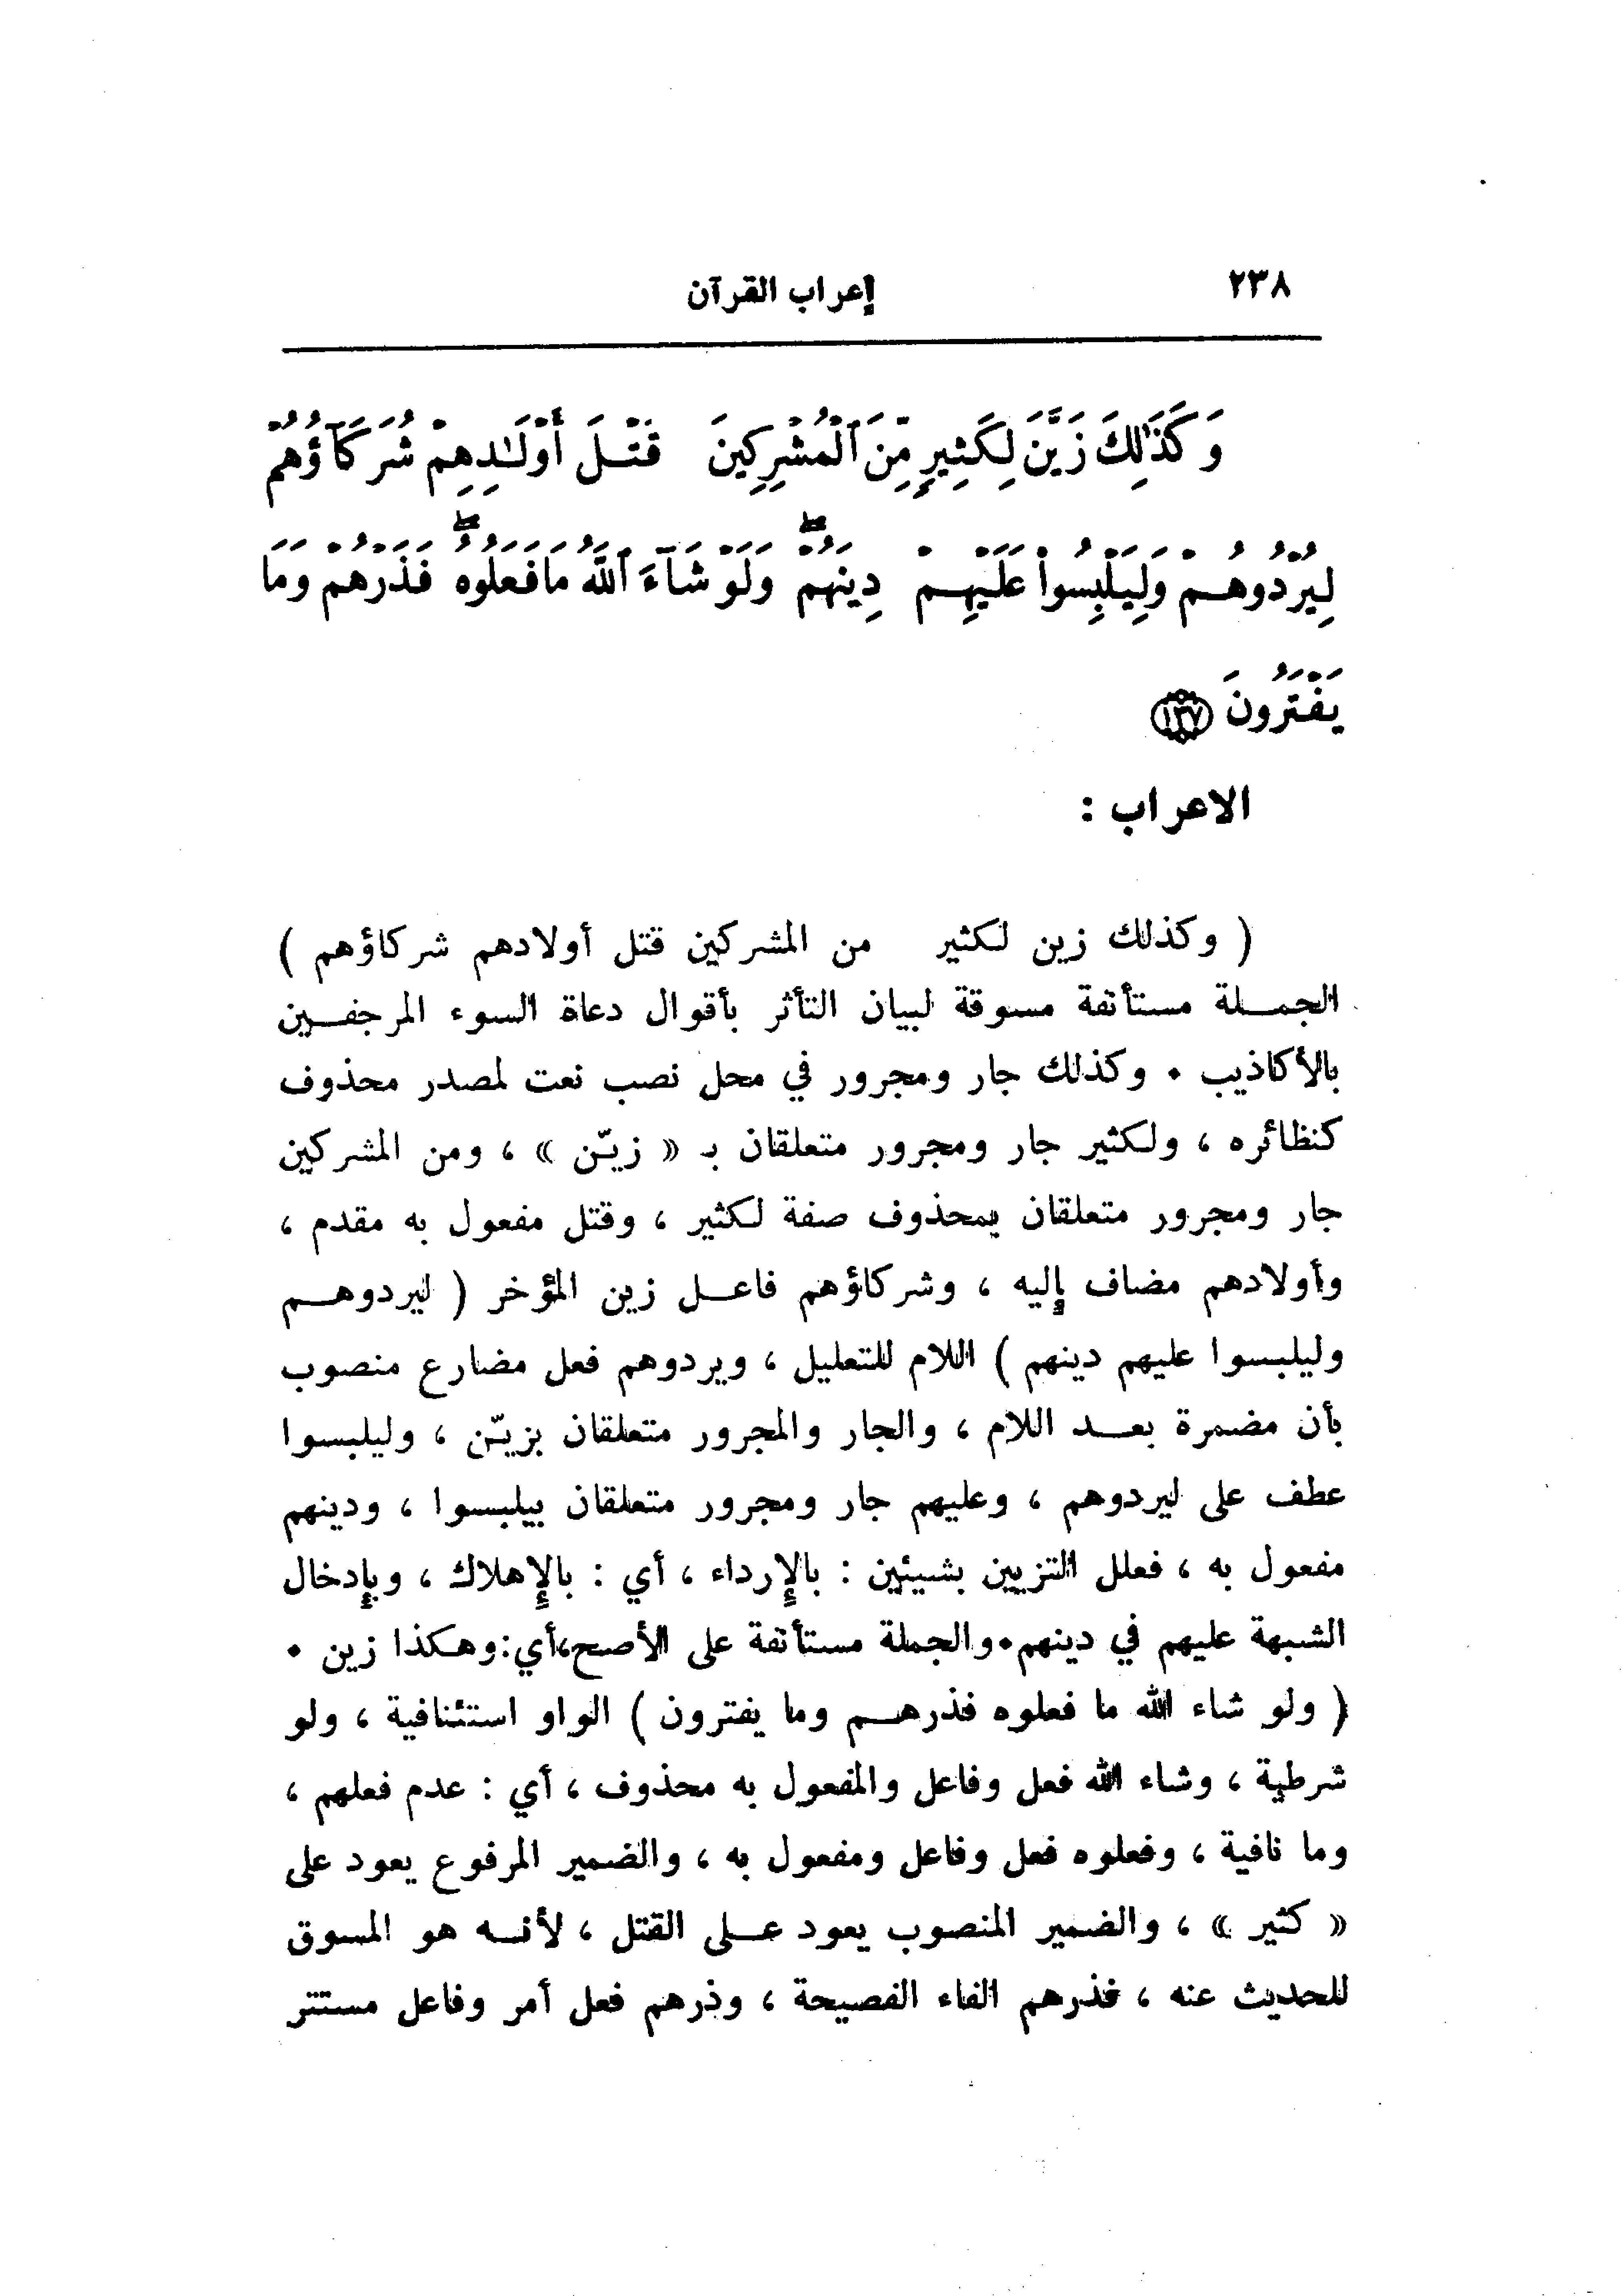 ٢٣٨
إعراب القرآن
وَكَذَٰلِكَ زَيَّنَ لِكَثِيرٍ مِّنَ ٱلْمُشْرِكِينَ قَتْلَ أَوْلَـٰدِهِمْ شُرَكَآؤُهُمْ
لِيُرْدُوهُمْ وَلِيَلْبِسُوا۟ عَلَيْهِمْ دِينَهُمْ ۖ وَلَوْ شَآءَ ٱللَّهُ مَا فَعَلُوهُ ۖ فَذَرْهُمْ وَمَا
يَفْتَرُونَ ١٣٧
الاعراب :
( وكذلك زين لكثير من المشركين قتل أولادهم شركاؤهم )
الجملة مستأنفة مسوقة لبيان التأثر بأقوال دعاة السوء المرجفين
بالأكاذيب . وكذلك جار ومجرور في محل نصب نعت لمصدر محذوف
كنظائره ، ولكثير جار ومجرور متعلقان بـ « زيّن » ، ومن المشركين
جار ومجرور متعلقان بمحذوف صفة لكثير ، وقتل مفعول به مقدم ،
وأولادهم مضاف إليه ، وشركاؤهم فاعل زين المؤخر ( ليردوهم
وليلبسوا عليهم دينهم ) اللام للتعليل ، ويردوهم فعل مضارع منصوب
بأن مضمرة بعد اللام ، والجار والمجرور متعلقان بزيّن ، وليلبسوا
عطف على ليردوهم ، وعليهم جار ومجرور متعلقان بيلبسوا ، ودينهم
مفعول به ، فعلل التزيين بشيئين : بالإرداء ، أي : بالإهلاك ، وبإدخال
الشبهة عليهم في دينهم . والجملة مستأنفة على الأصح ، أي : وهكذا زين .
( ولو شاء الله ما فعلوه فذرهم وما يفترون ) الواو استئنافية ، ولو
شرطية ، وشاء الله فعل وفاعل والمفعول به محذوف ، أي : عدم فعلهم ،
وما نافية ، وفعلوه فعل وفاعل ومفعول به ، والضمير المرفوع يعود على
« كثير » ، والضمير المنصوب يعود على القتل ، لأنه هو المسوق
للحديث عنه ، فذرهم الفاء الفصيحة ، وذرهم فعل أمر وفاعل مستتر